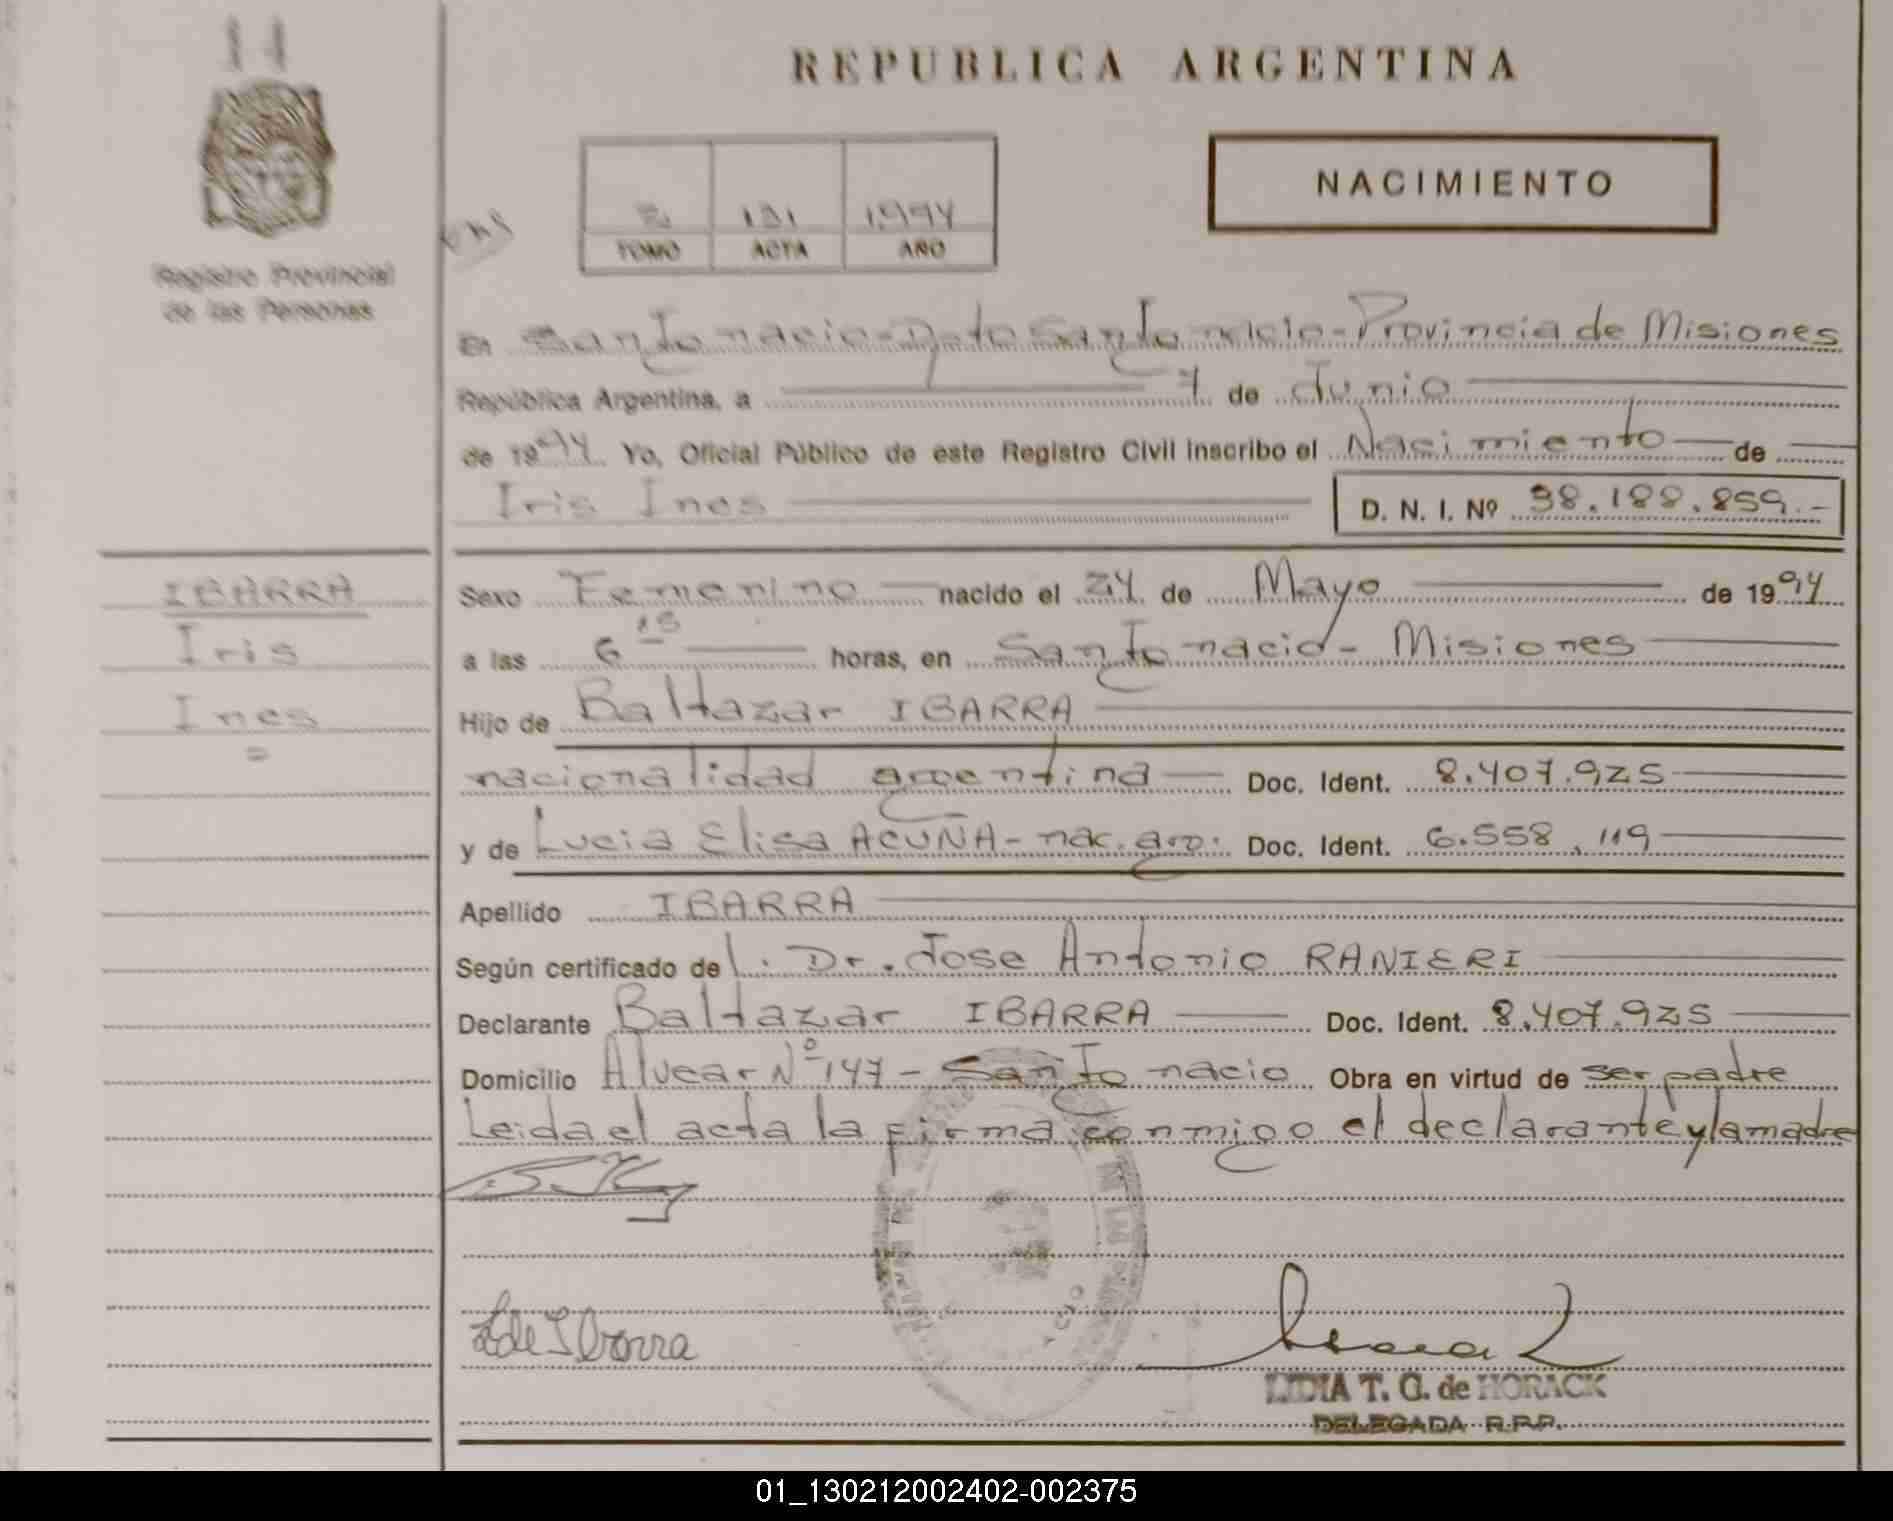 11
REPUBLICA ARGENTINA
NACIMIENTO
1994
TOMO ACTA AÑO
Registro Provincial
de las Personas
En San Ignacio - Dpto San Ignacio - Provincia de Misiones
República Argentina, a 7 de Junio
de 1994. Yo, Oficial Público de este Registro Civil inscribo el Nacimiento de
Iris Ines D. N. I. Nº 38.188.859.-
IBARRA
Iris
Ines
Sexo Femenino nacido el 24 de Mayo de 1994
a las 6 15 horas, en San Ignacio - Misiones
Hijo de Baltazar IBARRA
nacionalidad argentina Doc. Ident. 8.407.925
y de Lucia Elisa ACUÑA - nac. arg. Doc. Ident. 6.558.119
Apellido IBARRA
Según certificado del. Dr. Jose Antonio RANIERI
Declarante Baltazar IBARRA Doc. Ident. 8.407.925
Domicilio Alvear Nº 147 - San Ignacio Obra en virtud de ser padre
Leida el acta la firma conmigo el declarante y la madre
L de Ibarra
LIDIA T. G. de HORACK
DELEGADA R.P.P.
01_130212002402-002375